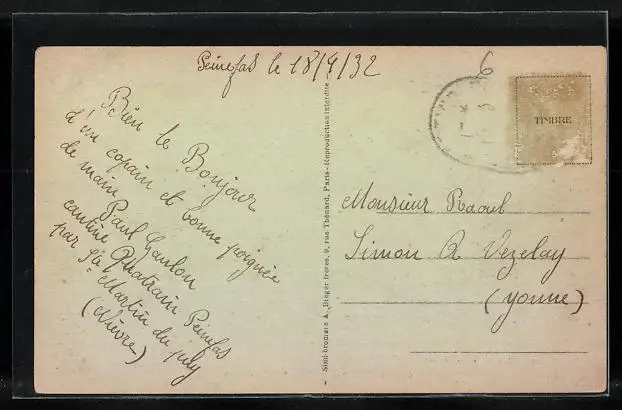 Peinefas le 18/4/32
6
TIMBRE
Bien le Bonjour
d'un copain et bonne poignée
de main
Paul Gaulon
cantine Quatrain Peinefas
par St Martin du puy
(Nièvre)
Simili-bromure A. Breger frères, 9, rue Thénard, Paris - Reproduction interdite
Monsieur Raoul
Simon A Vezelay
(yonne)